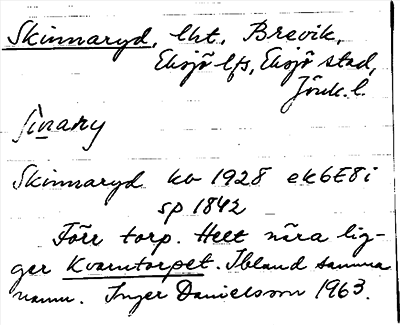 Skinnaryd, lht, Brevik,
Eksjö lfs, Eksjö stad,
Jönk. l.
Skinnaryd kv 1928 ek6E8i
sp 1842
Förr torp. Helt nära lig-
ger Kvarntorpet. Ibland samma
namn. Inger Danielsson 1963.